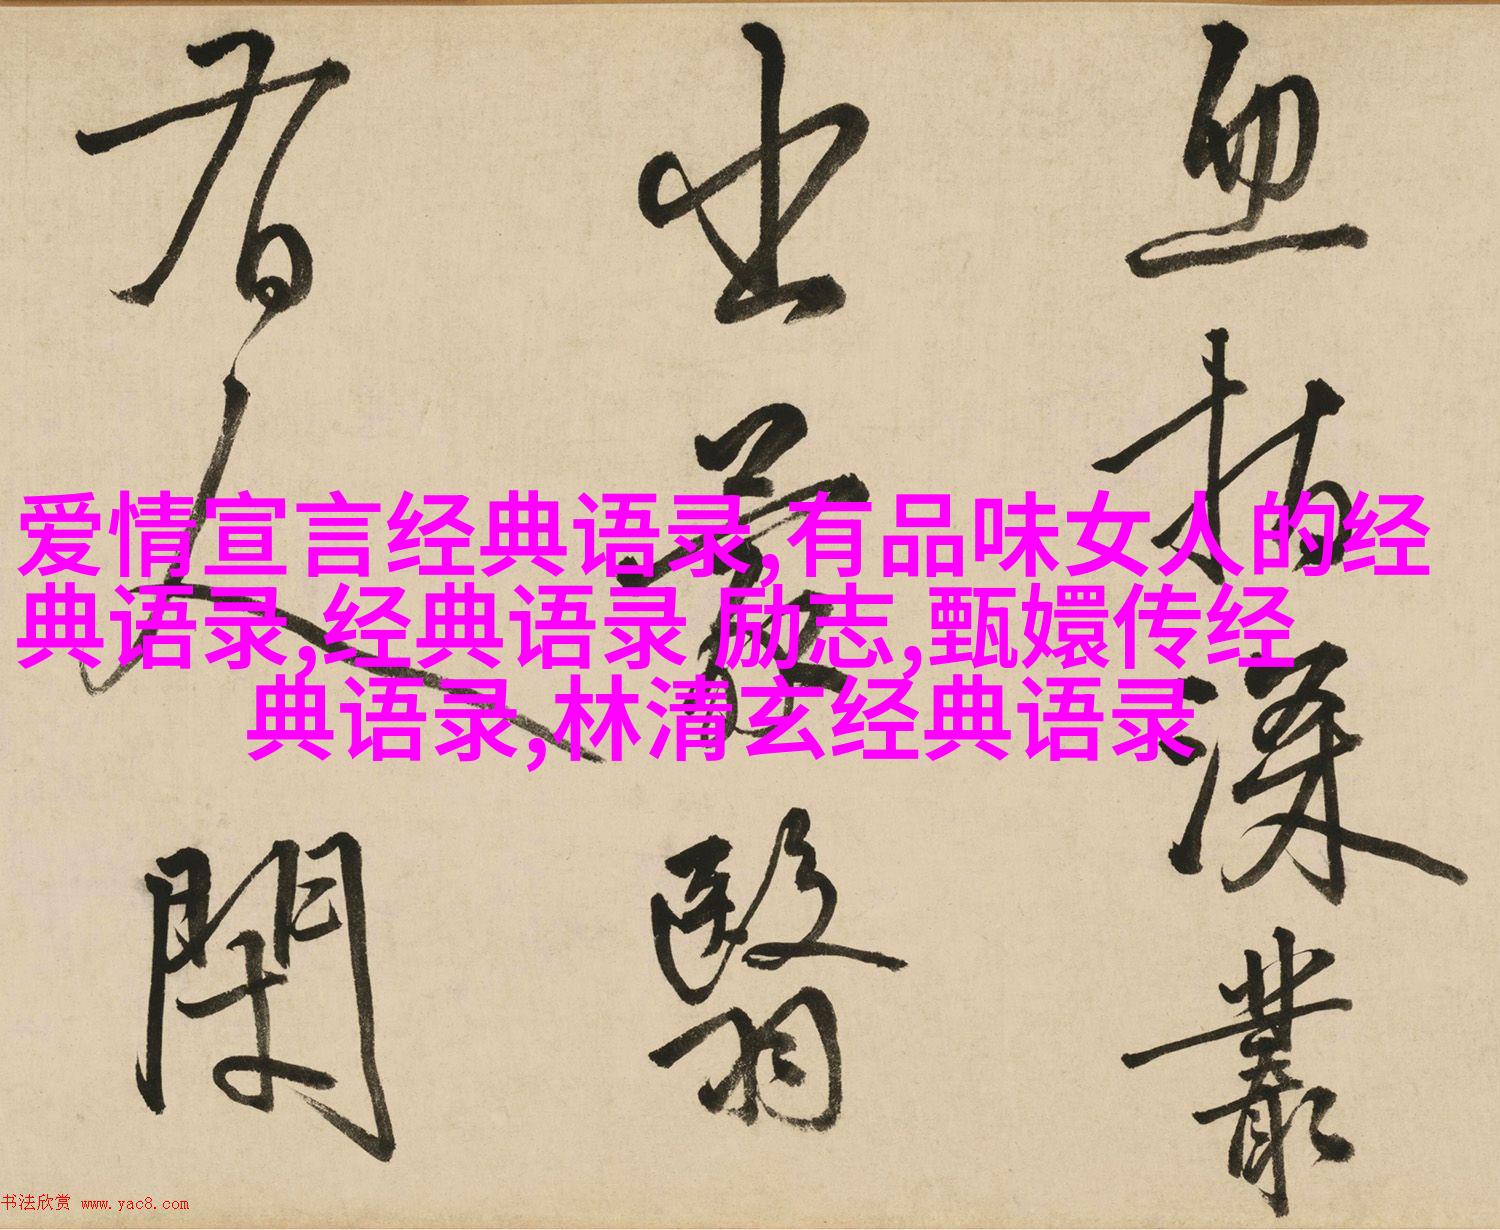 爱情宣言经典语录,有品味女人的经
典语录,经典语录 励志,甄嬛传经
典语录,林清玄经典语录
血指深叢
出蒙翳
书法欣赏 www.yac8.com